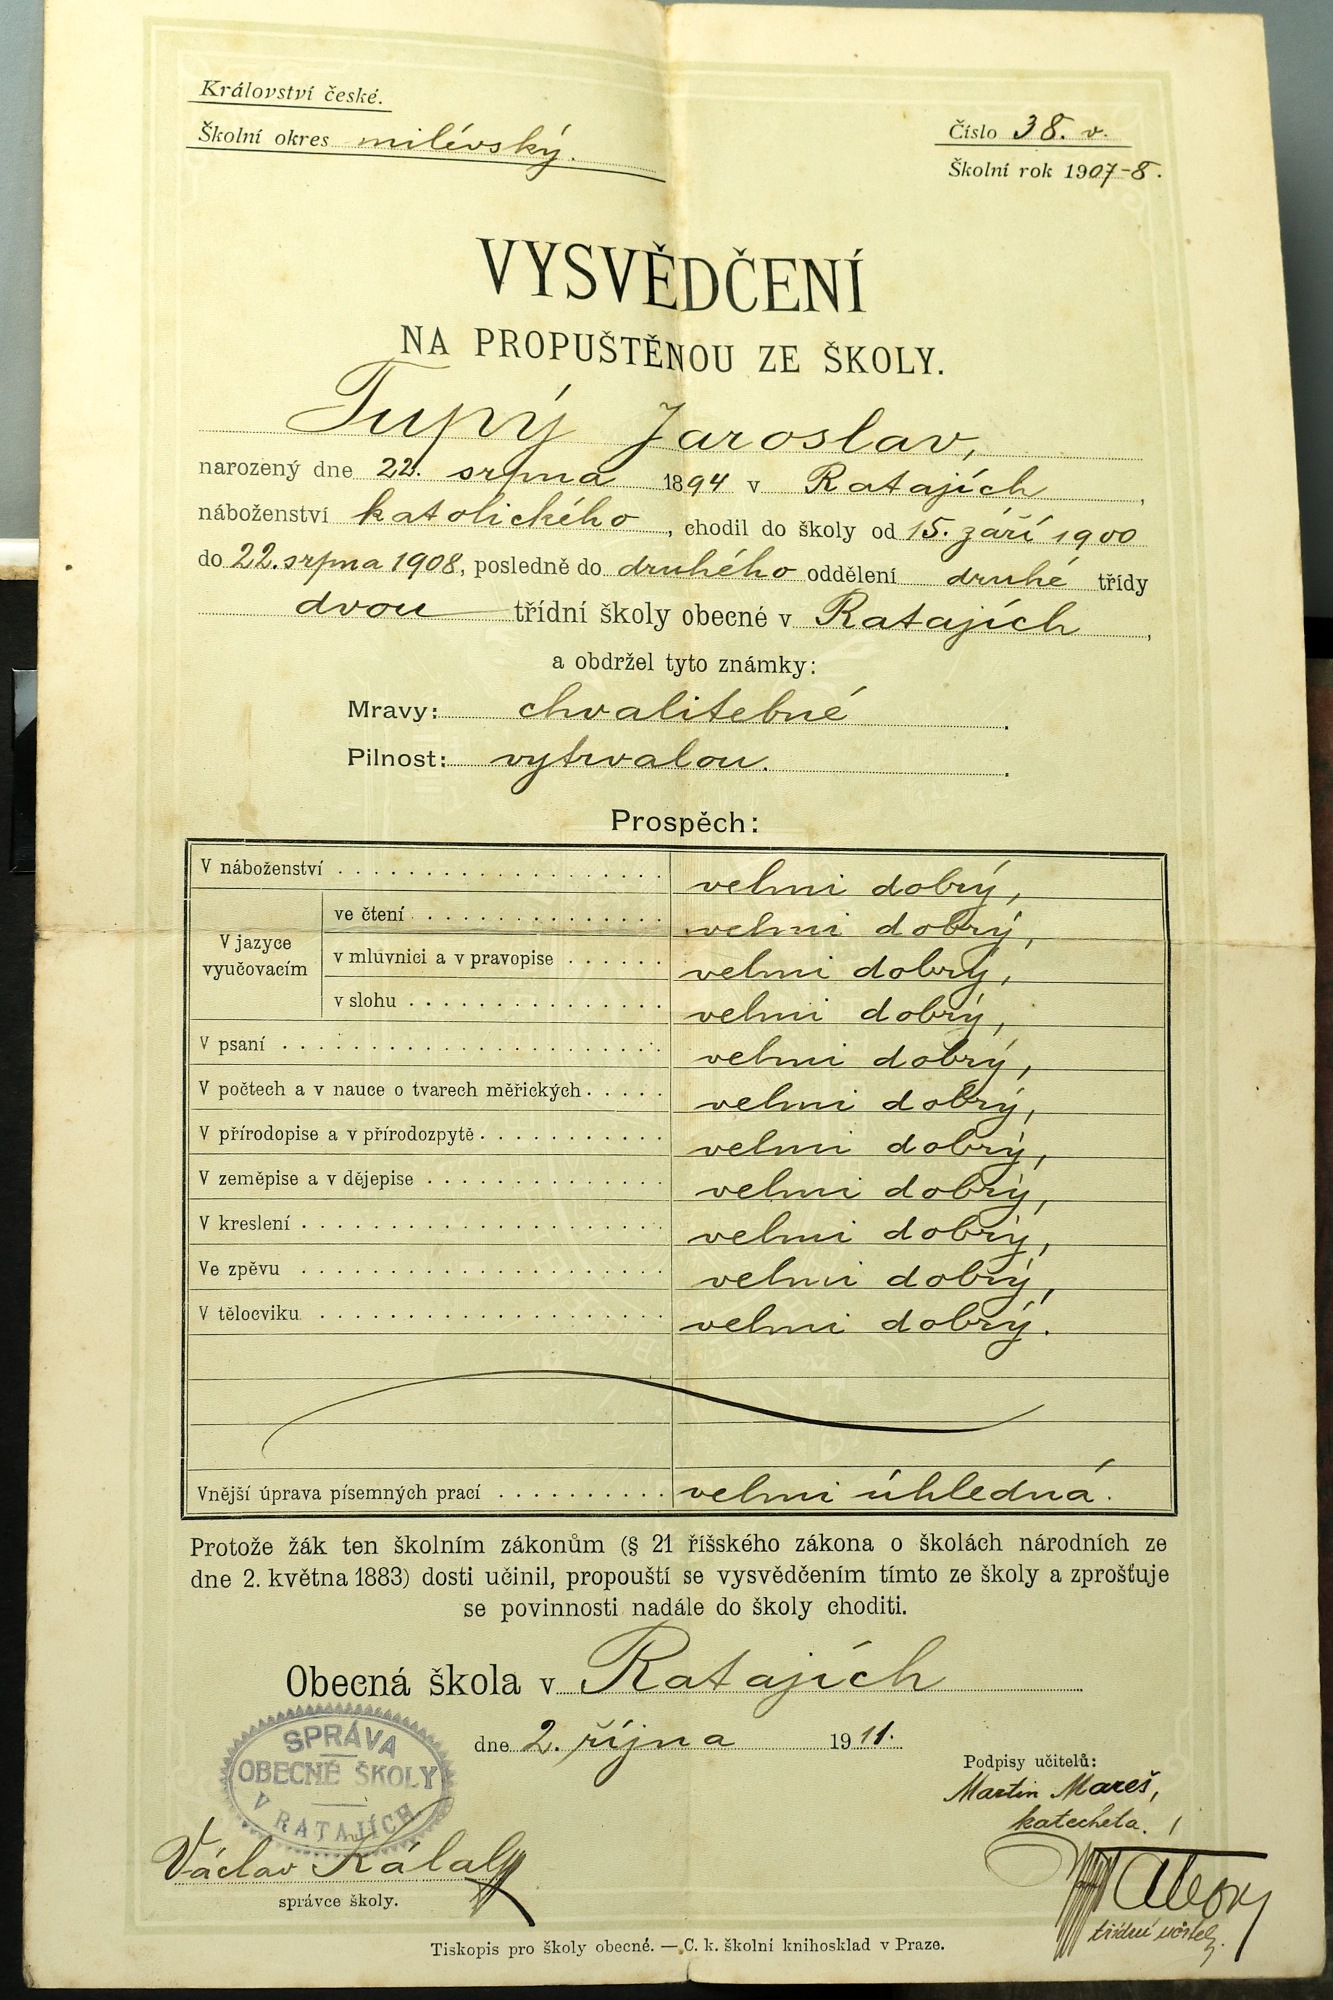 Království české.
Školní okres milévský.
Číslo 38. v.
Školní rok 1907-8.
VYSVĚDČENÍ
NA PROPUŠTĚNOU ZE ŠKOLY.
Tupý Jaroslav,
narozený dne 22. srpna 1894 v Ratajích,
náboženství katolického, chodil do školy od 15. září 1900
do 22. srpna 1908, posledně do druhého oddělení druhé třídy
dvou třídní školy obecné v Ratajích,
a obdržel tyto známky:
Mravy: chvalitebné.
Pilnost: vytrvalou.
Prospěch:
V náboženství velmi dobrý,
V jazyce vyučovacím
ve čtení velmi dobrý,
v mluvnici a v pravopise velmi dobrý,
v slohu velmi dobrý,
V psaní velmi dobrý,
V počtech a v nauce o tvarech měřických velmi dobrý,
V přírodopise a v přírodozpytě velmi dobrý,
V zeměpise a v dějepise velmi dobrý,
V kreslení velmi dobrý,
Ve zpěvu velmi dobrý,
V tělocviku velmi dobrý.
Vnější úprava písemných prací velmi úhledná.
Protože žák ten školním zákonům (§ 21 říšského zákona o školách národních ze
dne 2. května 1883) dosti učinil, propouští se vysvědčením tímto ze školy a zprošťuje
se povinnosti nadále do školy choditi.
Obecná škola v Ratajích
dne 2. října 1911.
SPRÁVA
OBECNÉ ŠKOLY
V RATAJÍCH
Podpisy učitelů:
Martin Mareš,
katecheta.
Václav Kálal
správce školy.
třídní učitel
Tiskopis pro školy obecné. — C. k. školní knihosklad v Praze.